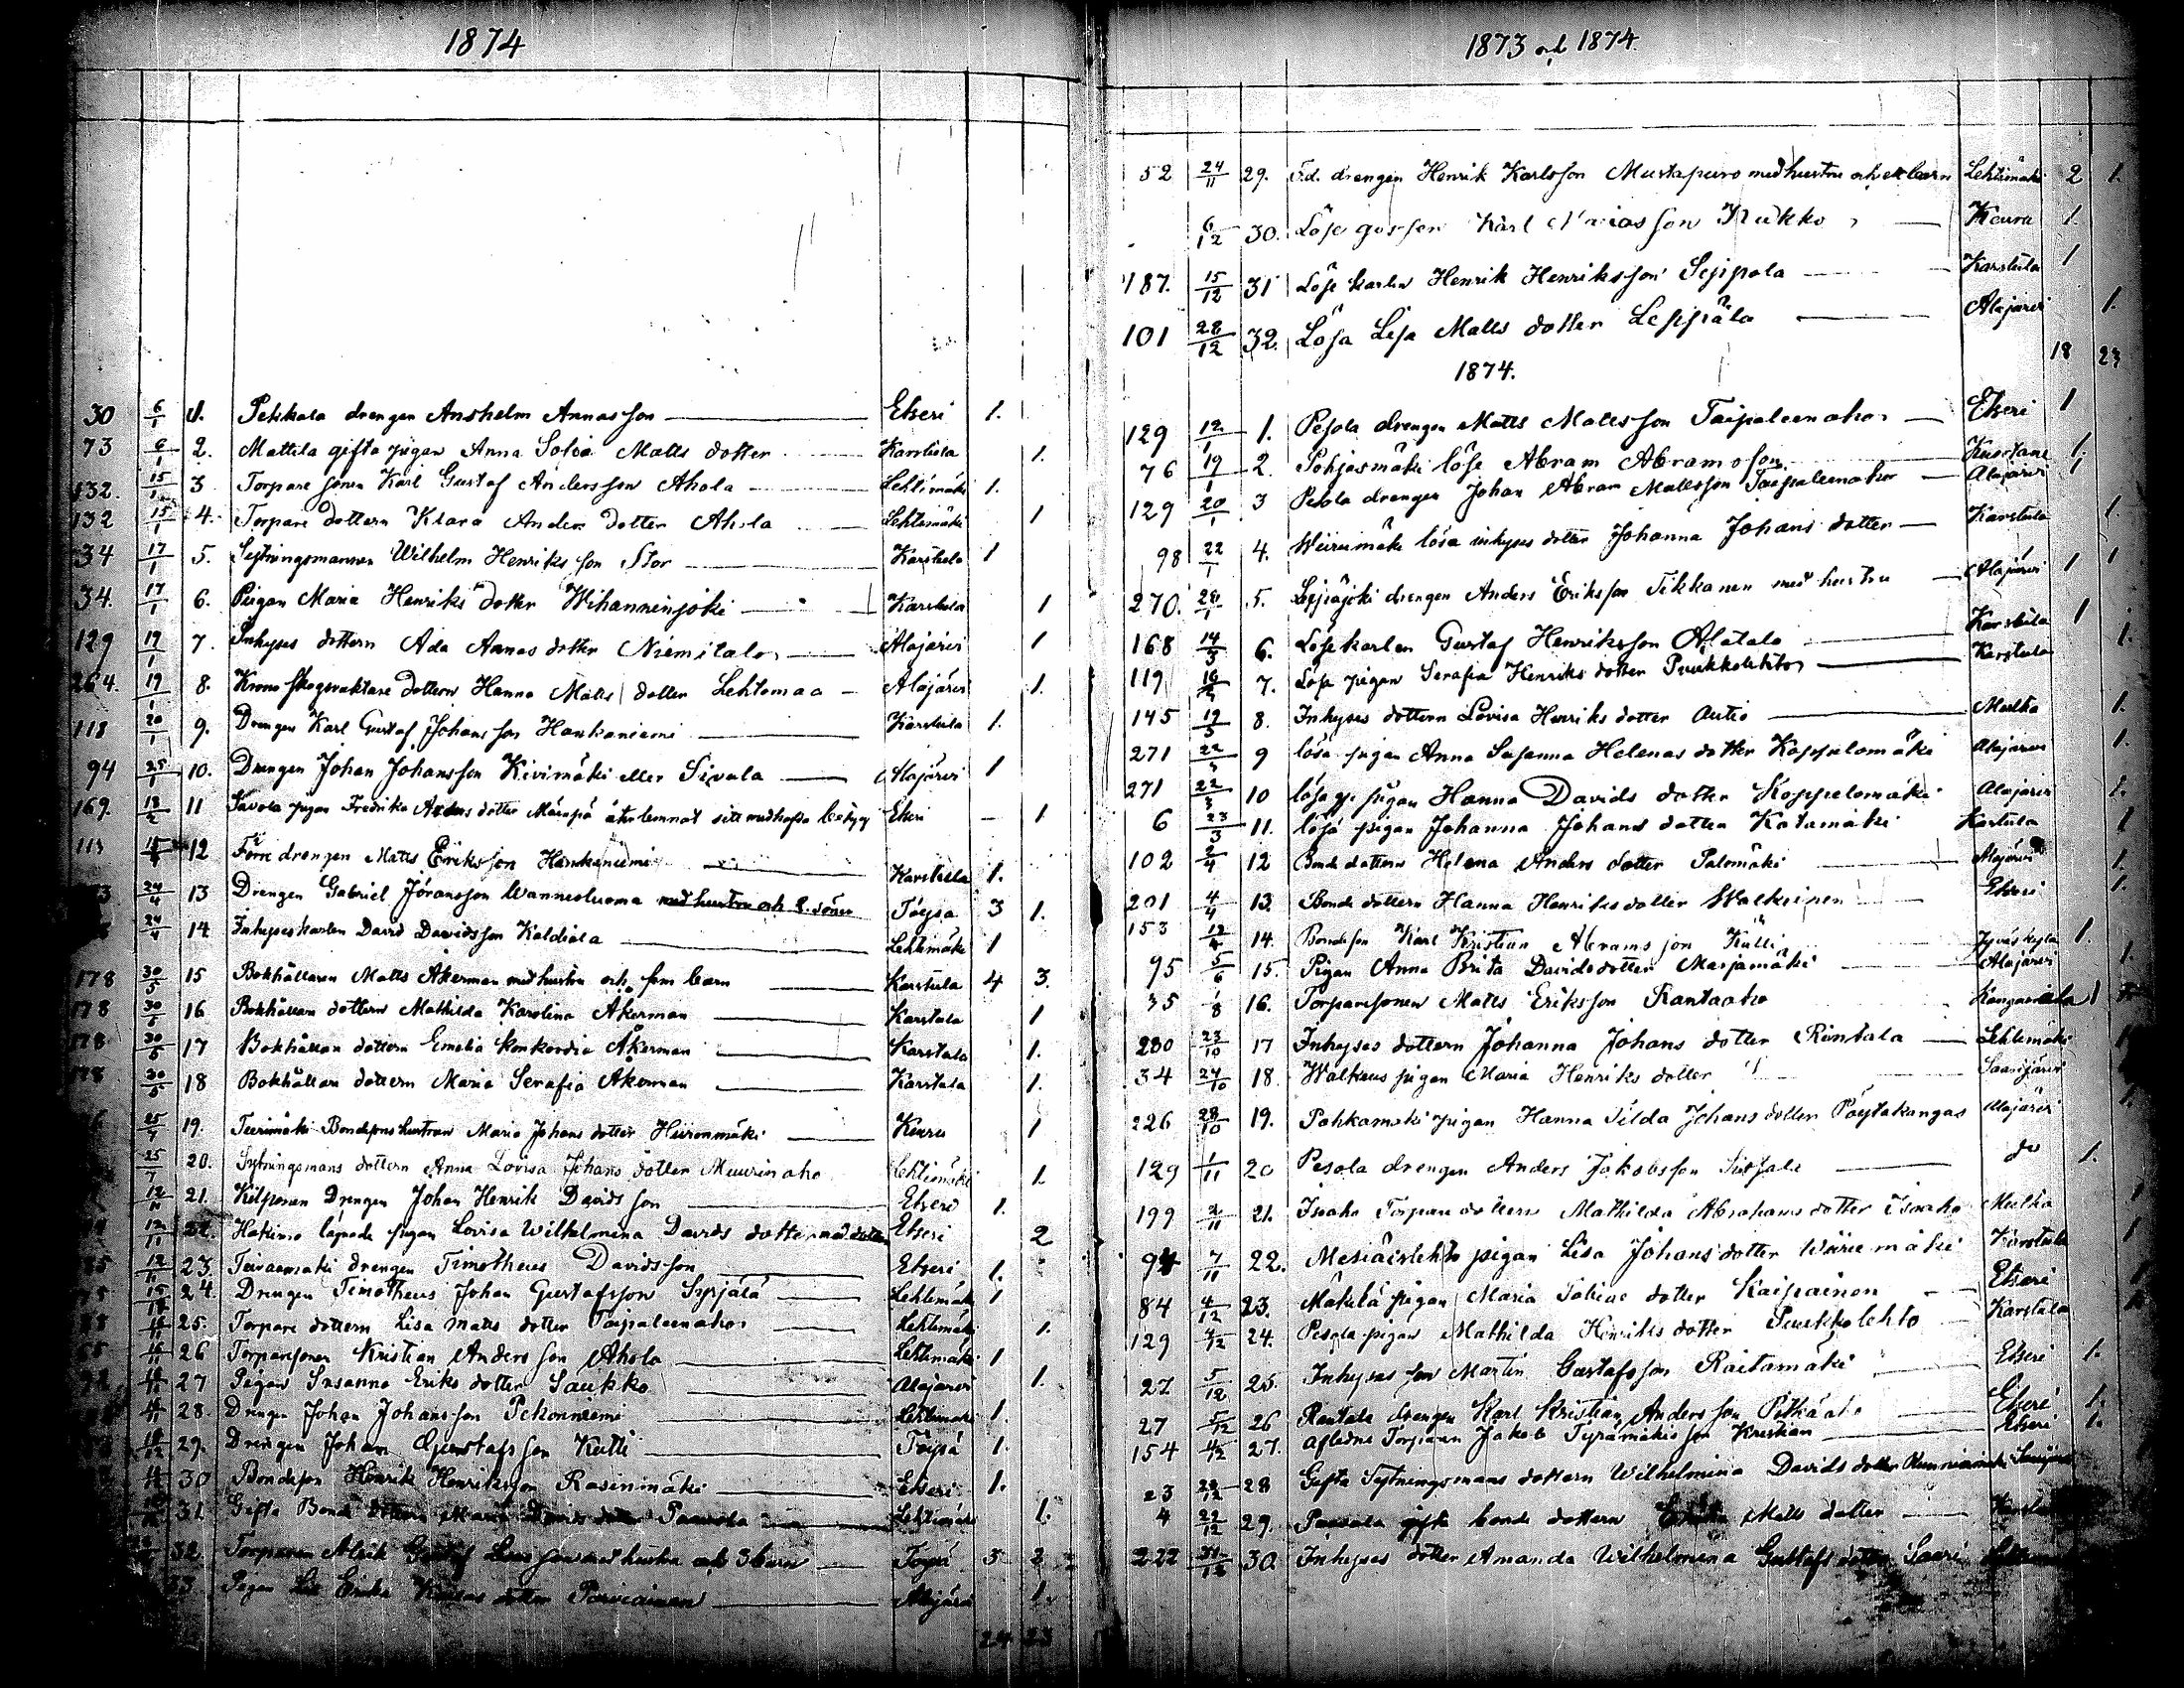 1874
30 6/1 1. Pekkala drengen Anshelm Annasson Etseri 1.
73 6/1 2. Mattila gifta pigan Anna Sofia Matts dotter Karstula 1.
132. 15/1 3 Torpare sonen Karl Gustaf Andersson Ahola Lehtimäki 1.
132 15/1 4. Torpare dottern Klara Anders dotter Ahola Lehtimäki 1
34 17/1 5. Sytningsmannen Wilhelm Henriksson Stor Karstula 1
34. 17/1 6. Pigan Maria Henriks dotter Wihanninjoki Karstula 1
129 19/1 7. Inhyses dottern Ada Annas dotter Niemitalo Alajärvi 1
264. 19/1 8. Krono skogvaktare dottern Hanna Matts dotter Lehtomaa Alajärvi 1.
118 20/1 9. Drengen Karl Gustaf Johansson Hankaniemi Karstula 1.
94 25/1 10. Drengen Johan Johansson Kivimäki eller Sipula Alajärvi 1
169. 11 Savola pigan Fredrika dotter återlemnat sitt medhafda betyg Etseri 1
12 Förre drengen Matts Eriksson Hankaniemi Karstula 1.
24/4 13 Drengen Gabriel Jöransson Wannesluoma med hustru och 2. söner Töysa 3 1.
24/4 14 Inhyseskarlen David Davidsson Kaldiala Lehtimäki 1
178 30/5 15 Bokhållaren Matts Åkerman med hustru och fem barn Karstula 4 3.
178 30/5 16 Bokhållare dottern Mathilda Karolina Åkerman Karstula 1
178 30/5 17 Bokhållare dottern Emelia Konkordia Åkerman Karstula 1.
178 30/5 18 Bokhållare dottern Maria Serafia Åkerman Karstula 1.
25/7 19. Bondesons hustrun Maria Johans dotter Hiironmäki Keuru 1
25/7 20. Sytningsmans dottern Anna Lovisa Johans dotter Muurinaho Lehtimäki 1.
12/11 21. Kilponen Drengen Johan Henrik Davidsson Etseri 1.
12/11 22. pigan Lovisa Wilhelmina Davids dotter med dotter Etseri 2
12/11 23 drengen Timotheus Davidsson Etseri 1.
15/11 24. Drengen Timotheus Johan Gustafsson Syrjälä Lehtimäki 1
25. Torpare dottern Lisa Matts dotter Taipaleenaho Lehtimäki 1.
26 Torparesonen Kristian Andersson Ahola Lehtimäki 1
27 Pigan Susanna Eriks dotter Saukko Alajärvi 1.
28. Drengen Johan Johansson Pekonniemi Lehtimäki 1.
29. Drengen Johan Gustafsson Kutti Töysä 1.
30 Bondeson Henrik Henriksson Rasinmäki Etseri 1.
31. Gifta Bonde dottern Maria Davids dotter Lehtimäki 1.
32 Torparen Alrik Gustaf med hustru och 3 barn Töysä 3 2
33 Pigan dotter Parviainen Alajärvi 1.
24 23
1873 och 1874.
52 24/11 29. F.d. drengen Henrik Karlsson Mustapuro med hustru och ett barn Lehtimäki 2 1.
6/12 30. Löse gossen Karl Kukko Keuru 1.
187. 15/12 31 Löse karlen Henrik Henriksson Seppola Karstula 1
101 28/12 32. Lösa Lisa Matts dotter Leppälä Alajärvi 1.
18 23
1874.
129 12/1 1. Pesola drengen Matts Mattsson Taipaleenaho Etseri 1
76 19/1 2. Pohjasmäki löse Abram Abramsson Kuortane 1.
129 20/1 3 Pesola drengen Johan Abram Mattsson Taipaleenaho Alajärvi 1
98 22/1 4. lösa inhyses dotter Johanna Johans dotter Karstula 1.
270. 28/1 5. Leppäjoki drengen Anders Eriksson Tikkanen med hustru Alajärvi 1 1
168 14/3 6. Löse karlen Gustaf Henriksson Alatalo Karstula 1
119 16/3 7. Lösa pigan Serafia Henriks dotter Puukkolehto Karstula 1.
145 19/3 8. Inhyses dottern Lovisa Henriks dotter Autio Multia 1.
271 22/3 9 lösa pigan Anna Susanna Helenas dotter Koppelomäki Alajärvi 1.
271 22/3 10 lösa pigan Hanna Davids dotter Koppelomäki Alajärvi 1.
6 23/3 11. lösa pigan Johanna Johans dotter Katamäki Karstula 1
102 2/4 12 Bonde dottern Helena Anders dotter Palomäki Alajärvi 1.
201 4/4 13. Bonde dottern Hanna Henriks dotter Walkeinen Etseri 1.
153 12/4 14. Bondeson Karl Kristian Abramsson Kulli Jyväskylä 1.
95 5/6 15. Pigan Anna Brita Davidsdotter Marjamäki Alajärvi 1.
35 1/8 16. Torparesonen Matts Eriksson Rantaaho 1
280 23/10 17 Inhyses dottern Johanna Johans dotter Rintala Lehtimäki 1
34 24/10 18. Walkeus pigan Maria Henriks dotter Saarijärvi 1
226 28/10 19. Pahkamäki pigan Hanna Tilda Johans dotter Pöytäkangas Alajärvi 1.
129 1/11 20 Pesola drengen Anders Jakobsson do 1.
199 2/11 21. Isoaho Torpare dottern Mathilda Abrahams dotter Isoaho Multia 1
94 7/11 22. pigan Lisa Johans dotter Karstula 1
84 4/12 23. Mäkelä pigan Maria Tobias dotter Kaipainen Etseri 1
129 4/12 24. Pesola pigan Mathilda Henriks dotter Puukkolehto Karstula 1
27 5/12 25. Inhyses son Martin Gustafsson Raitamäki Etseri 1.
27 5/12 26 Rantala drengen Karl Kristian Andersson Pitkäaho Etseri 1.
154 4/12 27. Aflidne Torparen Jakob Tyrämäkis son Kristian Etseri 1.
23 28 Gifta Sytningsmans dottern Wilhelmina Davids dotter
4 22/12 29. gifta bonde dottern Matts dotter Karstula
222 31/12 30. Inhyses dotter Amanda Wilhelmina Gustafs dotter Saari